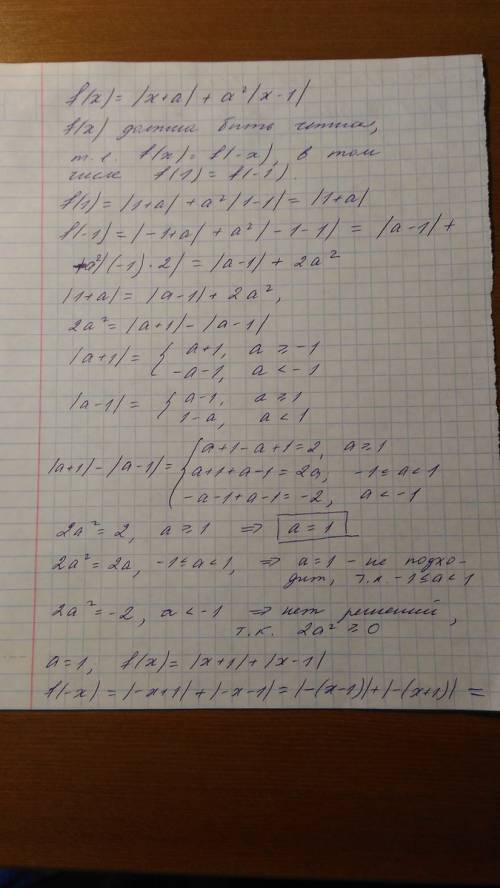 f(x) = |x+a| + a²|x-1|
f(x) должна быть четна,
т.е. f(x) = f(-x), в том
числе f(1) = f(-1).
f(1) = |1+a| + a²|1-1| = |1+a|
f(-1) = |-1+a| + a²|-1-1| = |a-1| +
+a²|(-1)·2| = |a-1| + 2a²
|1+a| = |a-1| + 2a²,
2a² = |a+1| - |a-1|
|a+1| = { a+1, a ≥ -1
-a-1, a < -1
|a-1| = { a-1, a ≥ 1
1-a, a < 1
|a+1| - |a-1| = { a+1-a+1 = 2, a ≥ 1
a+1+a-1 = 2a, -1 ≤ a < 1
-a-1+a-1 = -2, a < -1
2a² = 2, a ≥ 1 ⇒ a = 1
2a² = 2a, -1 ≤ a < 1, ⇒ a = 1 - не подхо-
дит, т.к -1 ≤ a < 1
2a² = -2, a < -1 ⇒ нет решений,
т.к. 2a² ≥ 0
a = 1, f(x) = |x+1| + |x-1|
f(-x) = |-x+1| + |-x-1| = |-(x-1)| + |-(x+1)| =